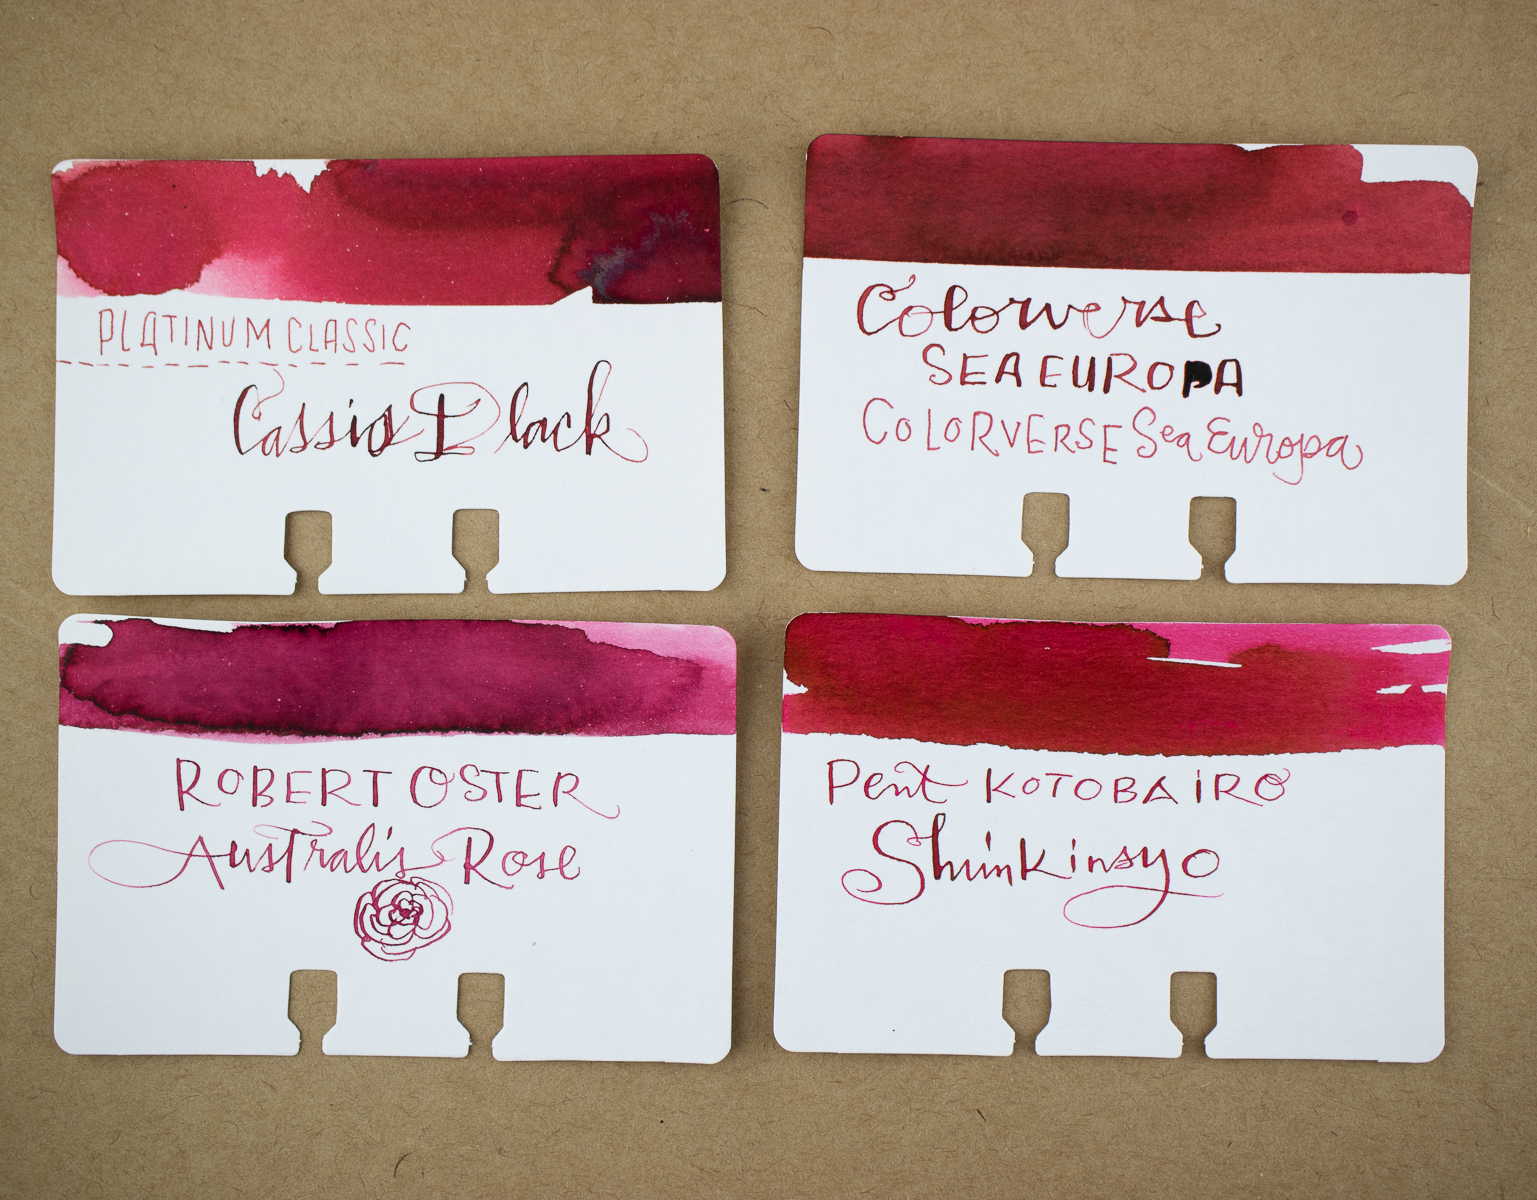 PLATINUM CLASSIC
Cassis Black
Colorverse
SEA EUROPA
COLORVERSE Sea Europa
ROBERT OSTER
Australis Rose
Pent KOTOBA iRO
Shinkinsyo